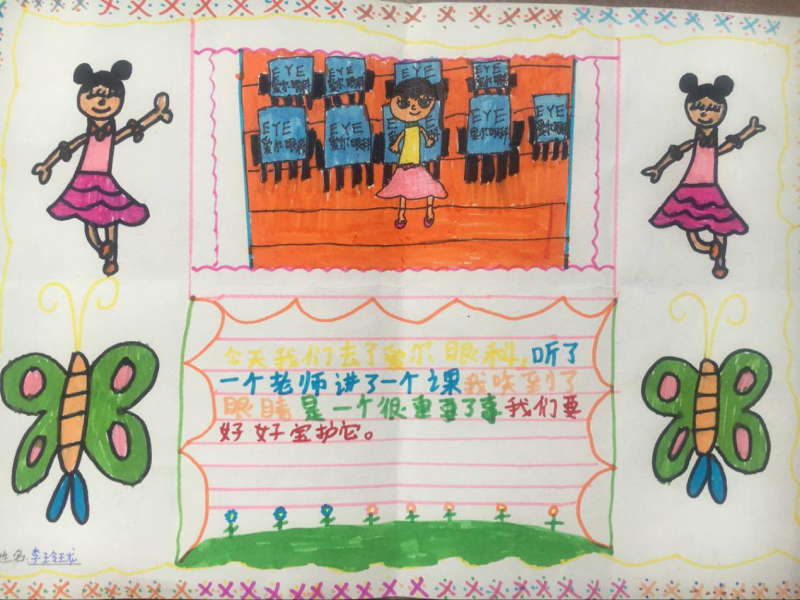 EYE EYE EYE EYE
爱尔眼科 爱尔眼科 爱尔眼科
EYE EYE EYE EYE
爱尔眼科 爱尔眼科 爱尔眼科 爱尔眼科
今天我们去了爱尔眼科,听了
一个老师讲了一个课我到了
眼睛是一个很重要了事我们要
好好宝护它。
姓名 李玲珑